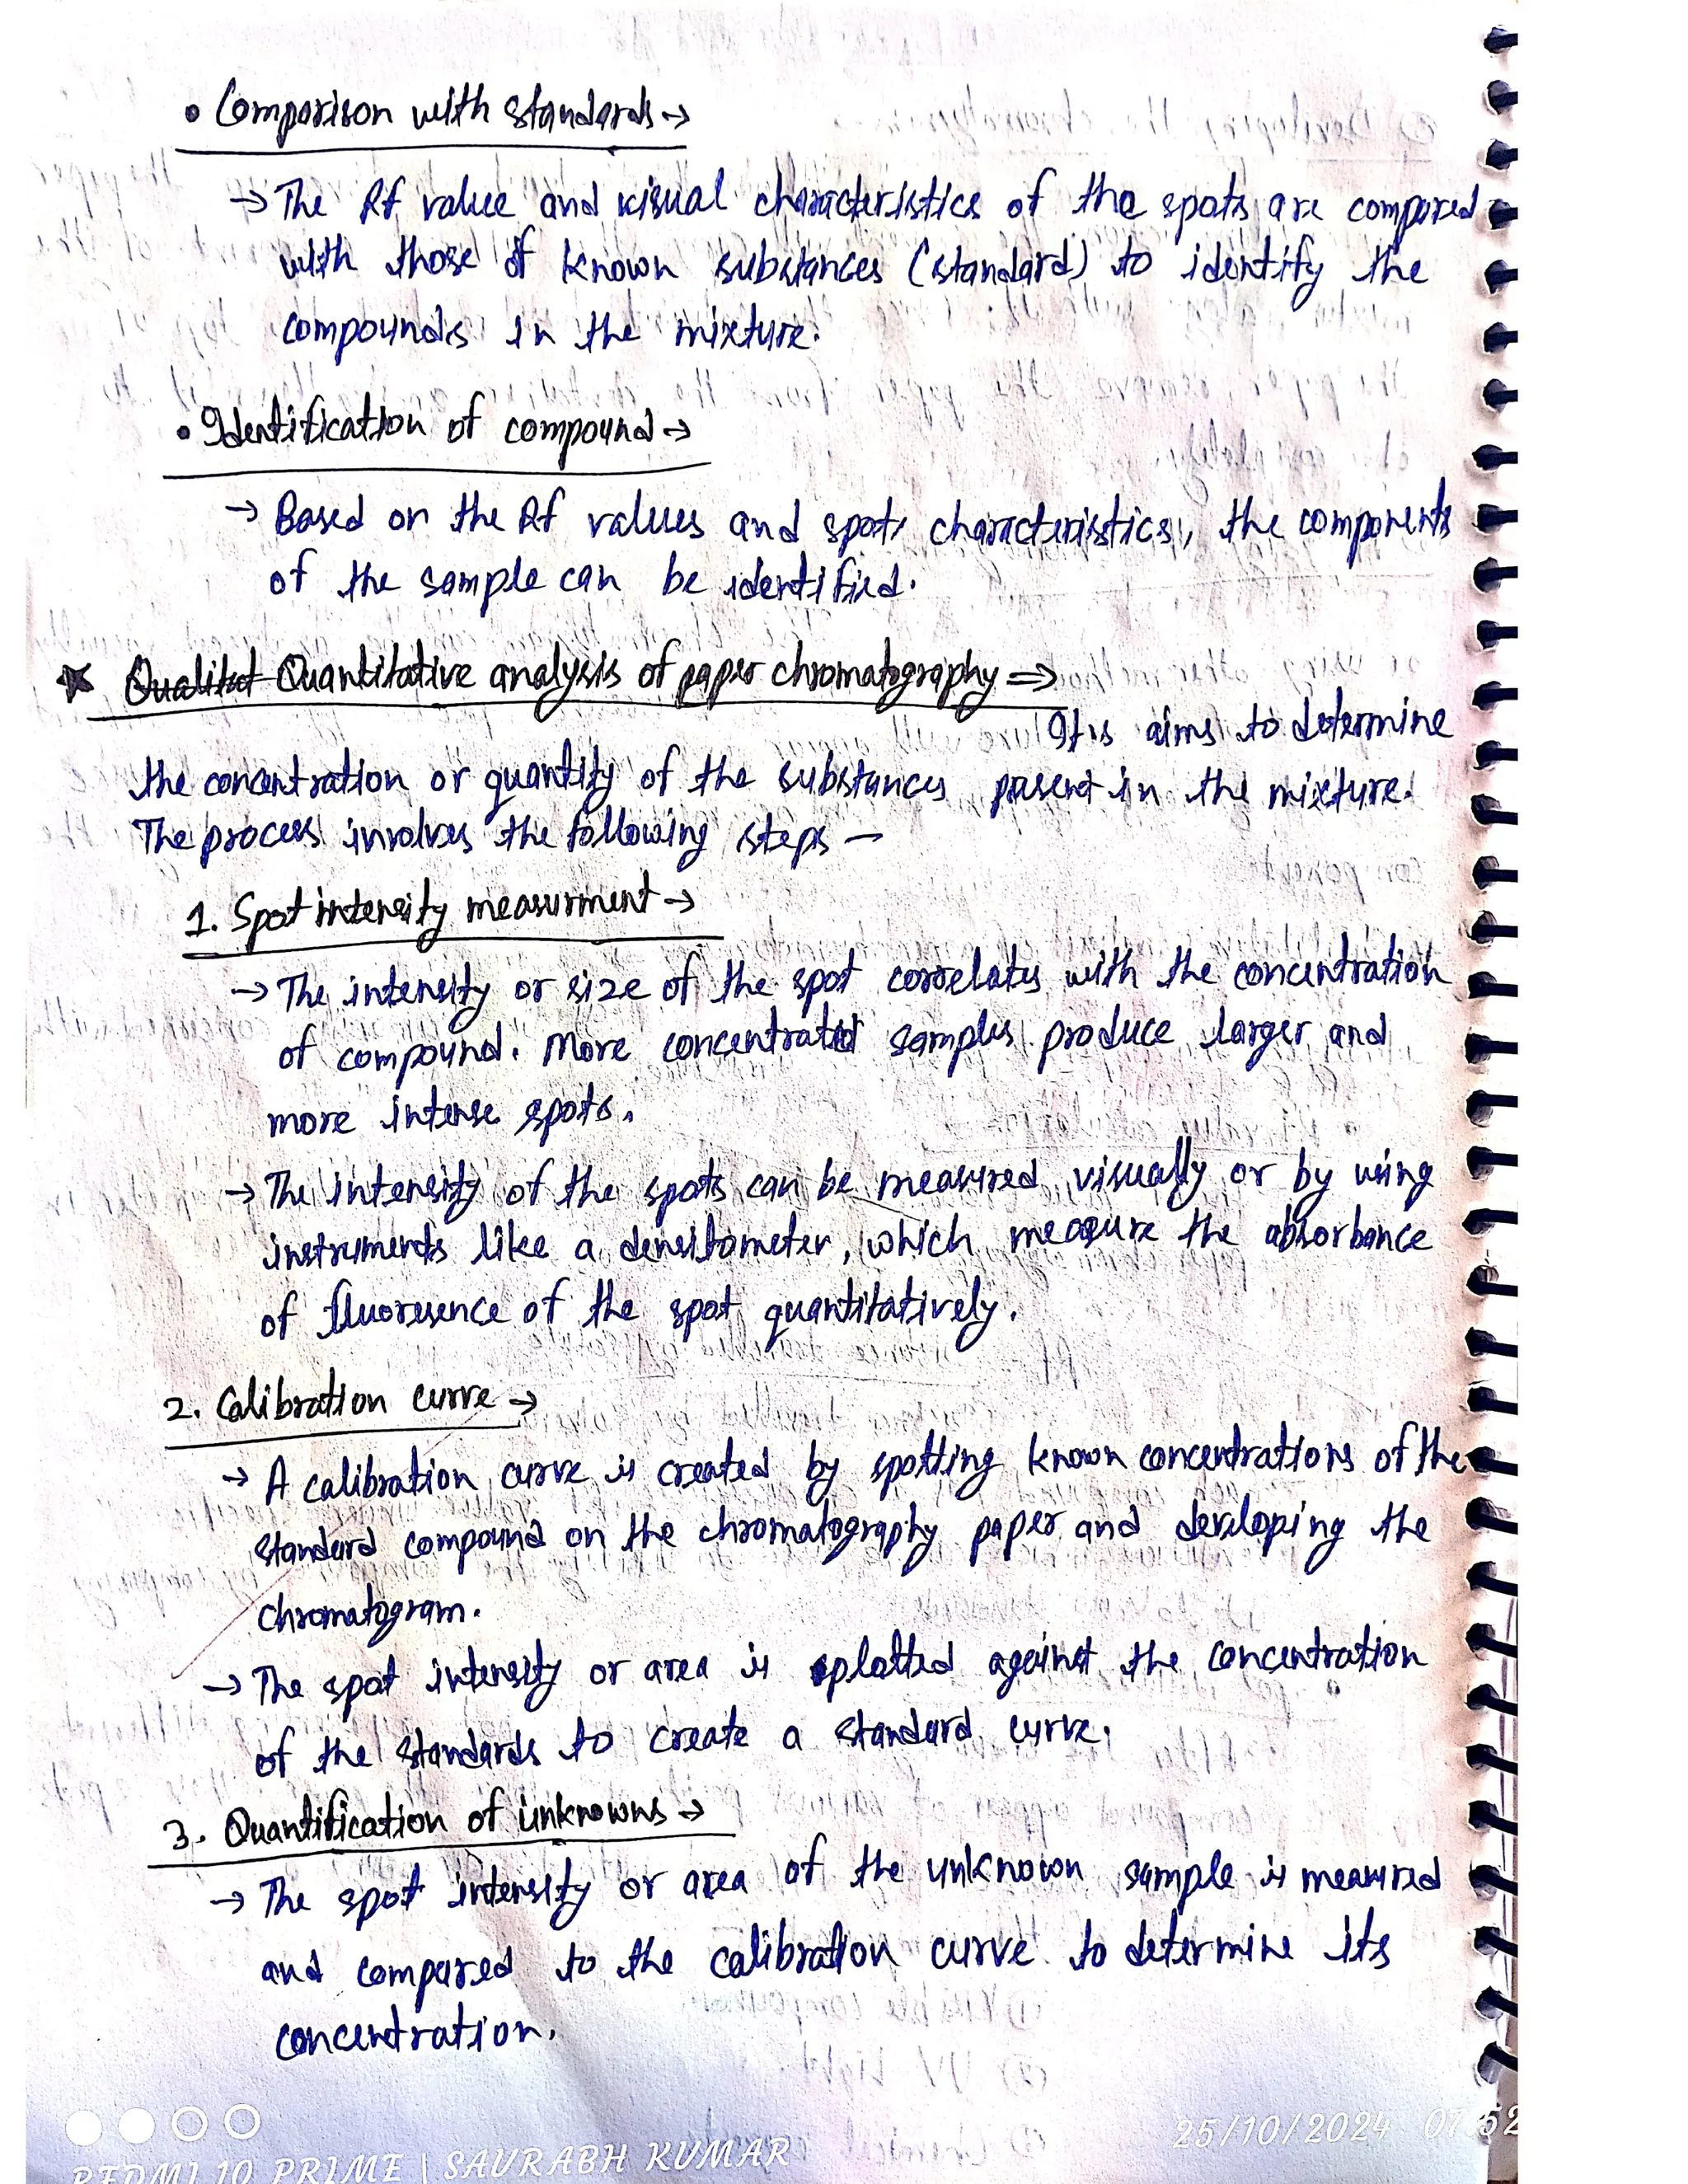 • Comparison with standards →
→ The Rf value and visual characteristics of the spots are compared
with those of known substances (standard) to identify the
compounds in the mixture.
• Identification of compound →
→ Based on the Rf values and spots characteristics, the components
of the sample can be identified.
Qualitat Quantitative analysis of paper chromatography ⇒
It is aims to determine
the concentration or quantity of the substances present in the mixture.
The process involves the following steps –
1. Spot intensity measurment →
→ The intensity or size of the spot correlates with the concentration
of compound. More concentrated samples produce larger and
more intense spots.
→ The intensity of the spots can be measured visually or by using
instruments like a densitometer, which measure the absorbance
of fluoresence of the spot quantitatively.
2. Calibration curve →
→ A calibration curve is created by spotting known concentrations of the
standard compound on the chromatography paper and developing the
chromatogram.
→ The spot intensity or area is plotted against the concentration
of the standards to create a standard curve.
3. Quantification of unknowns →
→ The spot intensity or area of the unknown sample is measured
and compared to the calibration curve to determine its
concentration.
25/10/2024 07:52
REDMI 10 PRIME | SAURABH KUMAR